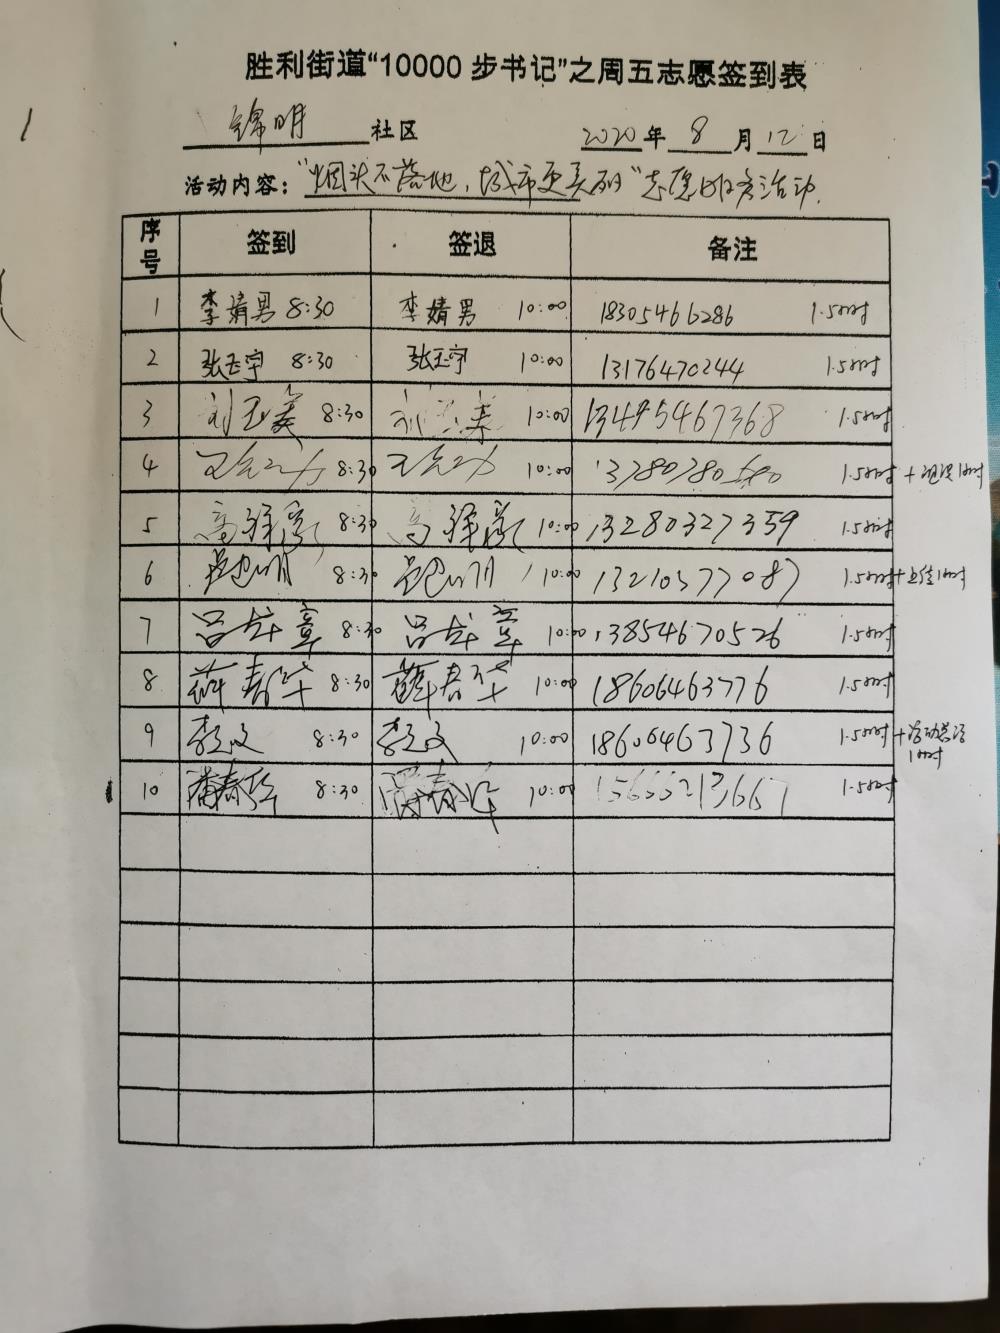 胜利街道“10000步书记”之周五志愿签到表
锦明 社区 2020年 8 月 12 日
活动内容：“烟头不落地，城市更美丽”志愿服务活动.
序号 签到 签退 备注
1 李婧男 8:30 李婧男 10:00 18305466286 1.5小时
2 张玉宇 8:30 张玉宇 10:00 13176470244 1.5小时
3 刘玉美 8:30 10:00 13495467368 1.5小时
4 8:30 10:00 1.5小时+ 1小时
5 8:30 10:00 13280327359 1.5小时
6 8:30 10:00 13210377087 1.5小时+ 1小时
7 吕龙章 8:30 吕龙章 10:00 13854670526 1.5小时
8 薛春华 8:30 薛春华 10:00 18606463776 1.5小时
9 李文 8:30 李文 10:00 18606463736 1.5小时+活动总结
1小时
10 8:30 10:00 1.5小时